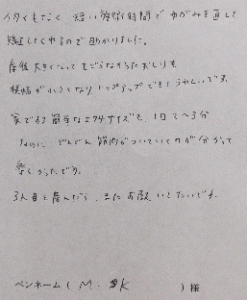 イタくもなく 短い施術時間で ゆがみを直して
矯正してくれるので 助かりました。
産後 大きくなって もどらなかったおしりも
横幅が小さくなり トップアップできてうれしいです。
家でも 簡単なエクササイズを 1日 2〜3分
なのに どんどん 筋肉がついていくのが 分かって
楽しかったです。
3人目を産んだら、またお願いしたいです。
ペンネーム ( M. K ) 様